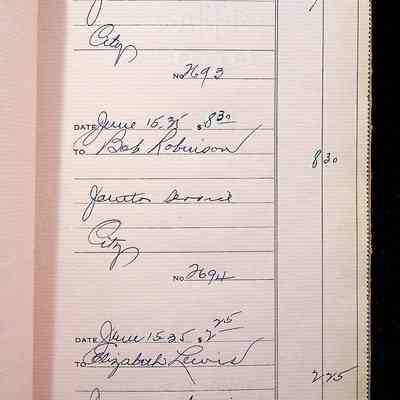 City
No 2693
DATE June 15-35 $ 8 30
TO Bob Robinson
8 30
Janitor Service
City
No 2694
DATE June 15-35 $ 2 25
TO Elizabeth Lewis
2 25